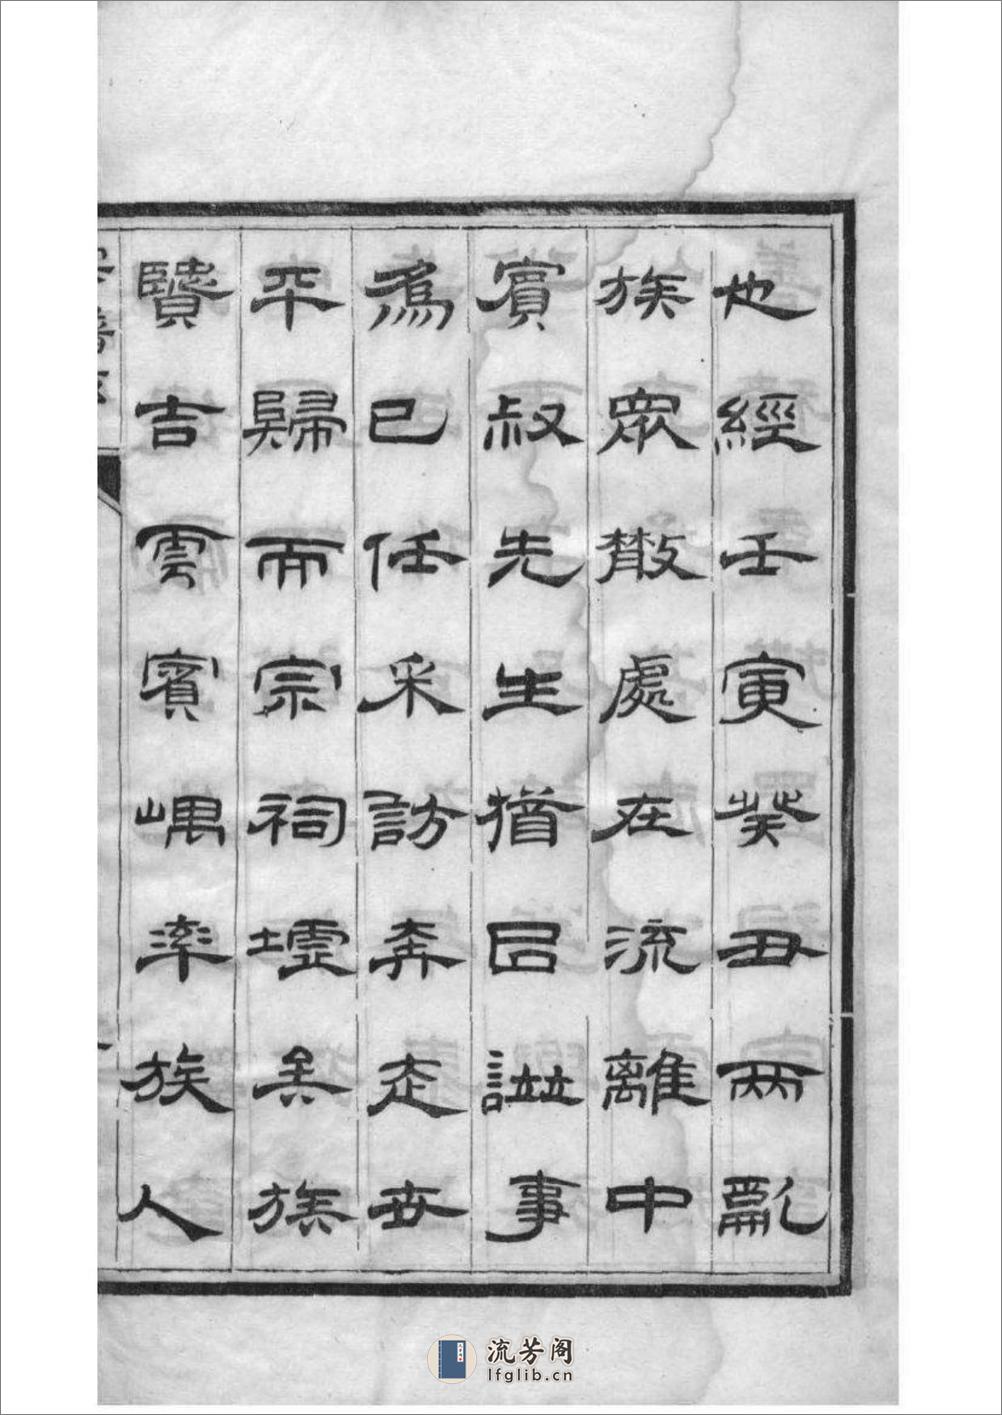 也經壬寅癸丑兩亂
族眾散處在流離中
賓叔先生猶㠯譜事
為已任采訪奔走世
平歸而宗祠墟矣族
賢吉雲賓嵎率族人
流芳阁
lfglib.cn